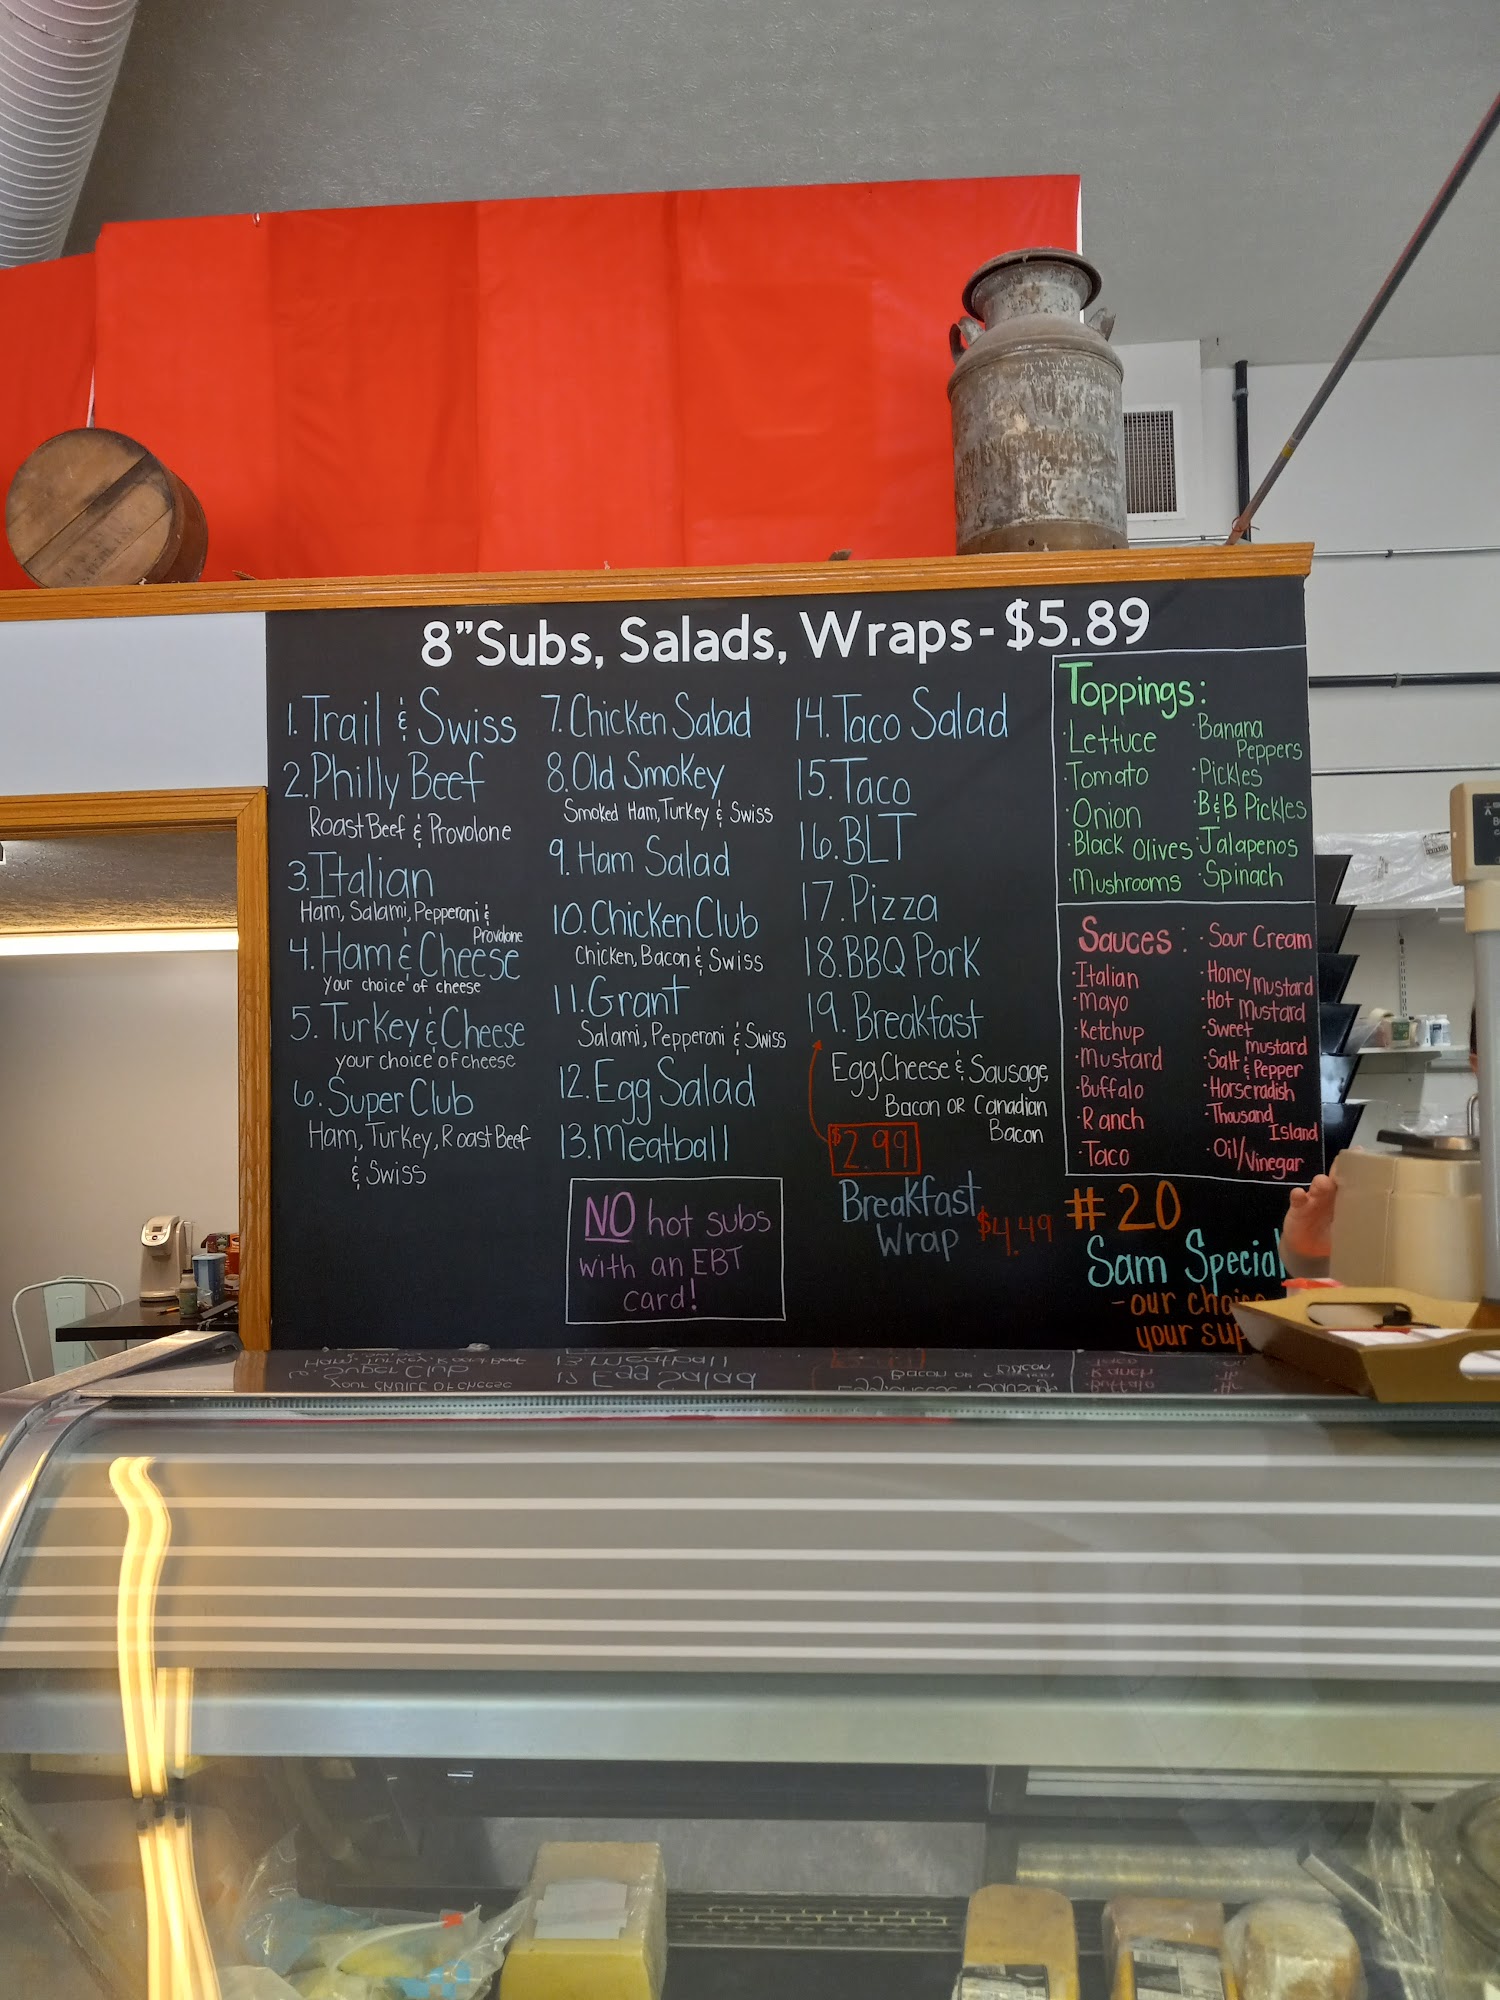 8" Subs, Salads, Wraps - $5.89
1. Trail & Swiss
2. Philly Beef
Roast Beef & Provolone
3. Italian
Ham, Salami, Pepperoni &
Provolone
4. Ham & Cheese
your choice of cheese
5. Turkey & Cheese
your choice of cheese
6. Super Club
Ham, Turkey, Roast Beef
& Swiss
7. Chicken Salad
8. Old Smokey
Smoked Ham, Turkey & Swiss
9. Ham Salad
10. Chicken Club
Chicken, Bacon & Swiss
11. Grant
Salami, Pepperoni & Swiss
12. Egg Salad
13. Meatball
NO hot subs
with an EBT
card!
14. Taco Salad
15. Taco
16. BLT
17. Pizza
18. BBQ Pork
19. Breakfast
Egg, Cheese & Sausage,
Bacon OR Canadian
Bacon
$2.99
Breakfast
Wrap $4.49
Toppings:
·Lettuce
·Tomato
·Onion
·Black Olives
·Mushrooms
·Banana
Peppers
·Pickles
·B&B Pickles
·Jalapenos
·Spinach
Sauces:
·Italian
·Mayo
·Ketchup
·Mustard
·Buffalo
·Ranch
·Taco
·Sour Cream
·Honey Mustard
·Hot Mustard
·Sweet
mustard
·Salt & Pepper
·Horseradish
·Thousand
Island
·Oil/Vinegar
#20
Sam Special
-our
your